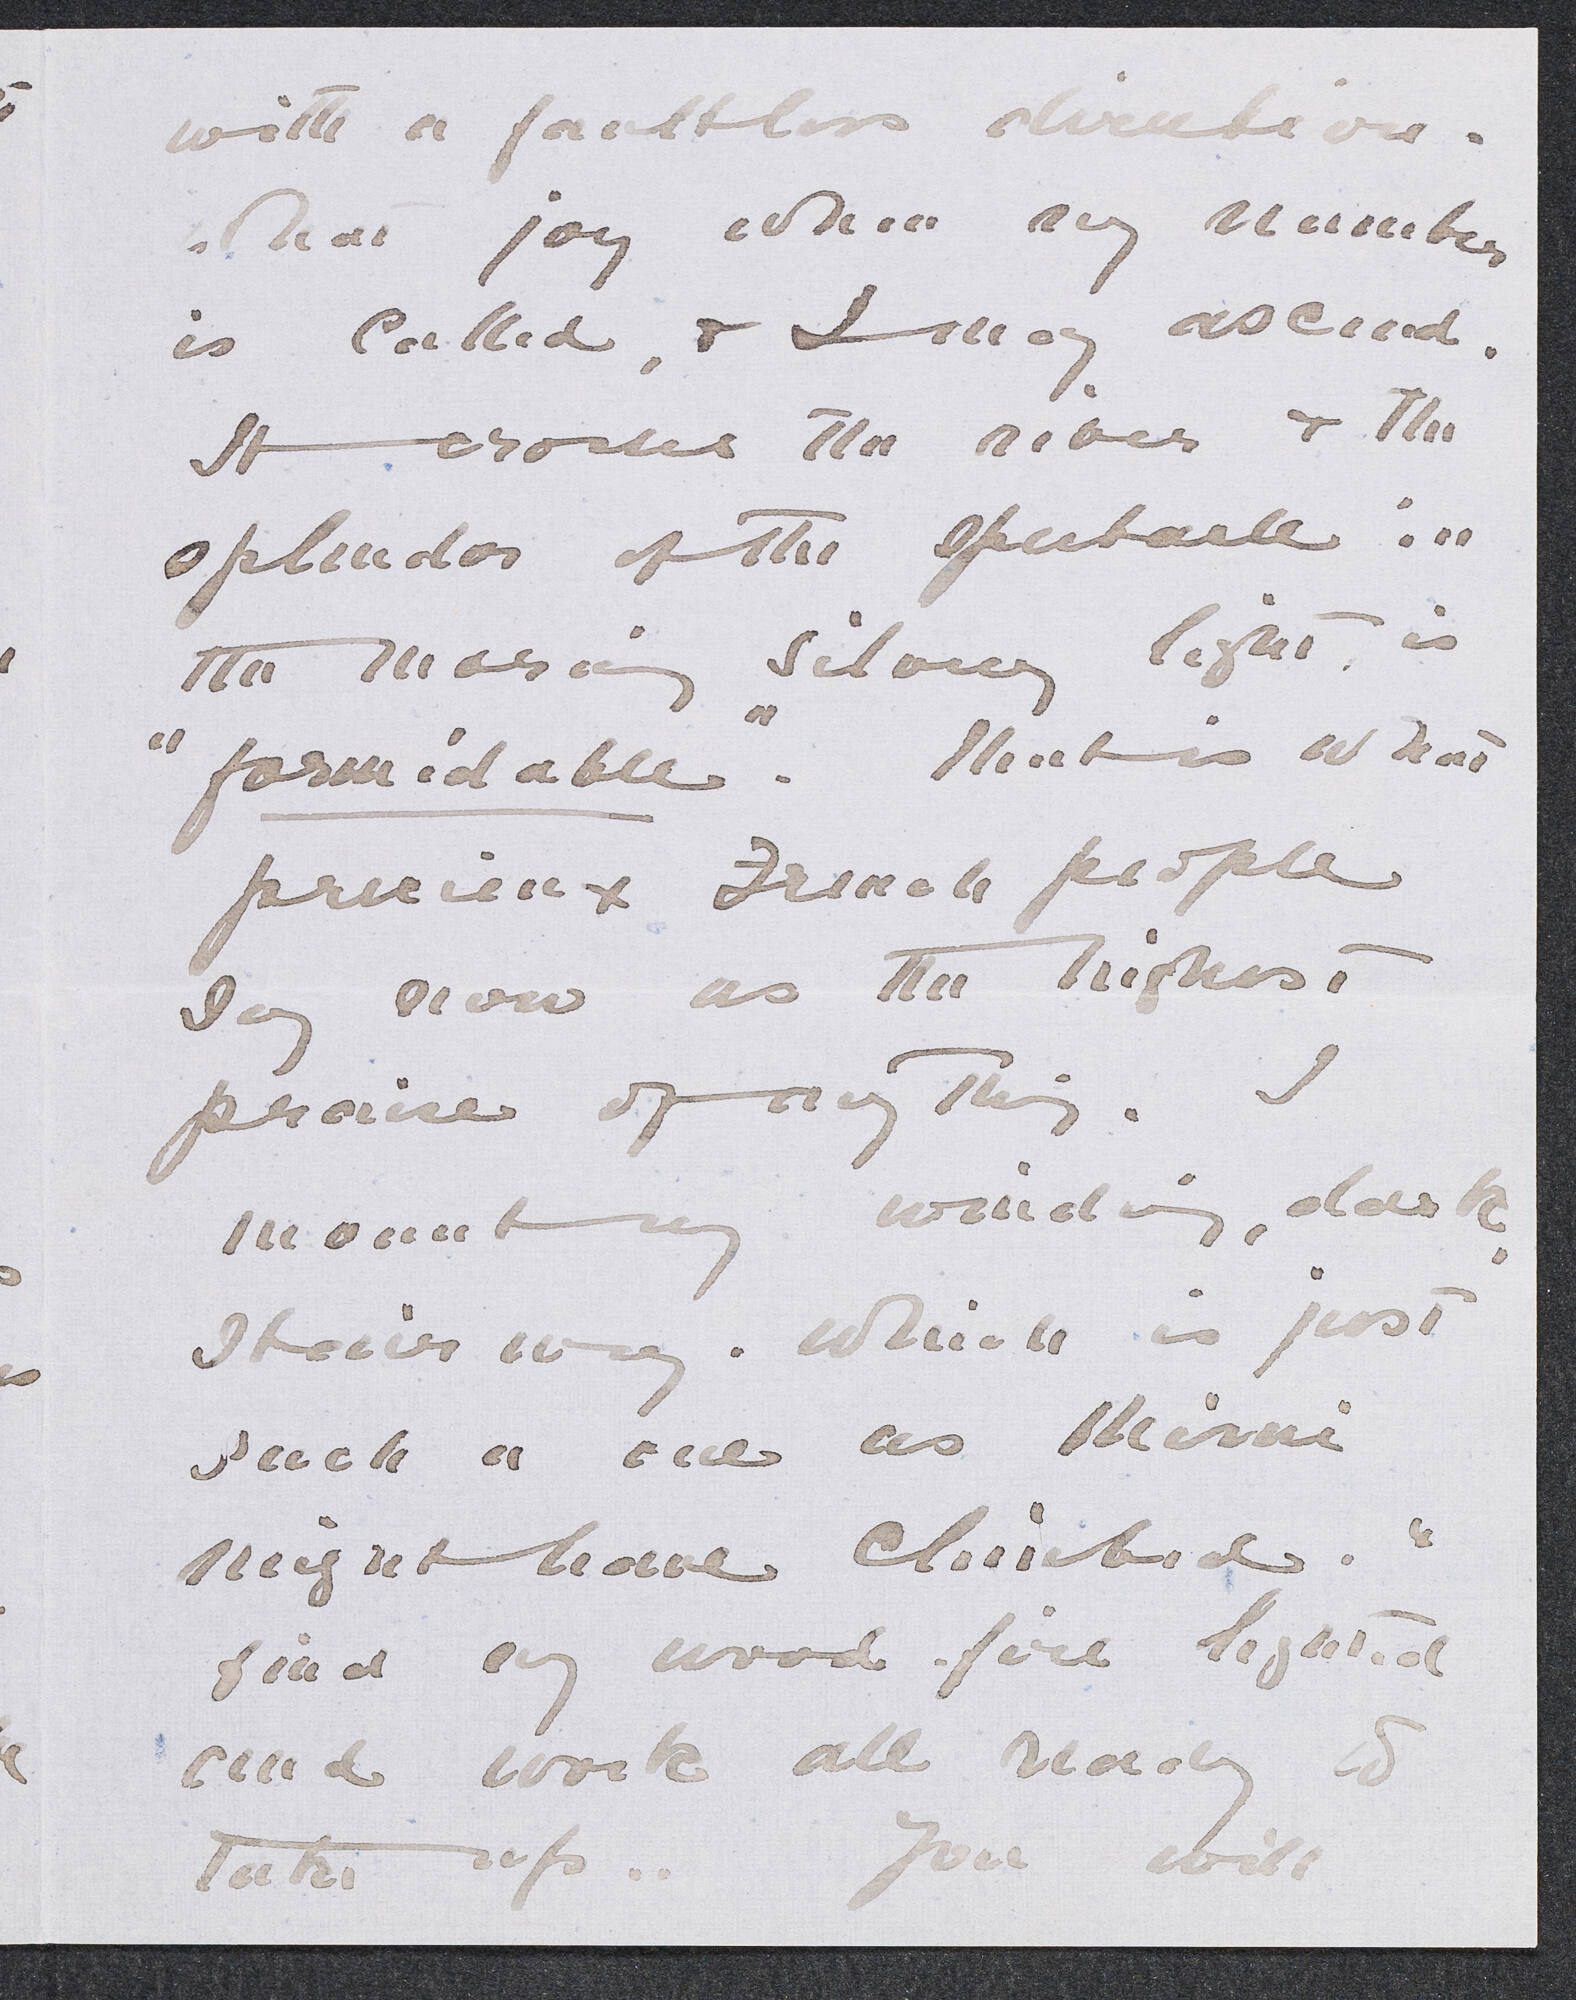 with a faultless direction.
What joy when my number
is called, & I may ascend.
It crosses the river & the
splendor of the spectacle in
the morning silvery light, is
"formidable". That is what
precieux French people
say now as the highest
praise of anything. I
mount my winding, dark,
stairway. which is just
such a one as Mimi
might have climbed."
find my wood-fire lighted
and work all ready to
take up.. You will